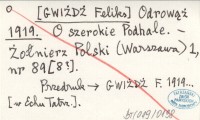 [GWIŻDŻ Feliks] Odrowąż
1919. O szerokie Podhale. –
Żołnierz Polski (Warszawa) 1,
nr 84[8?].
Przedruk → GWIŻDŻ F. 1919...
[w Echu Tatrz.].